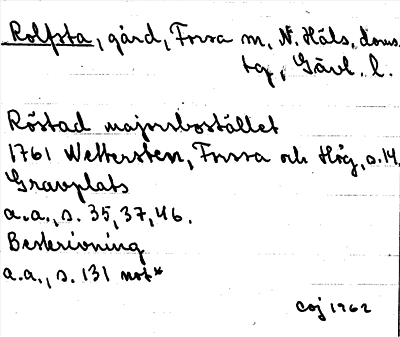 Rolfsta, gård, Forsa sn, N. Häls. doms.
tg, Gävl. l.
Röstad majorsbostället
1761 Wettersten, Forsa och Hög, s.14.
Gravplats
a.a., s. 35, 37, 46.
Beskrivning
a.a., s. 131 not*
coj 1962